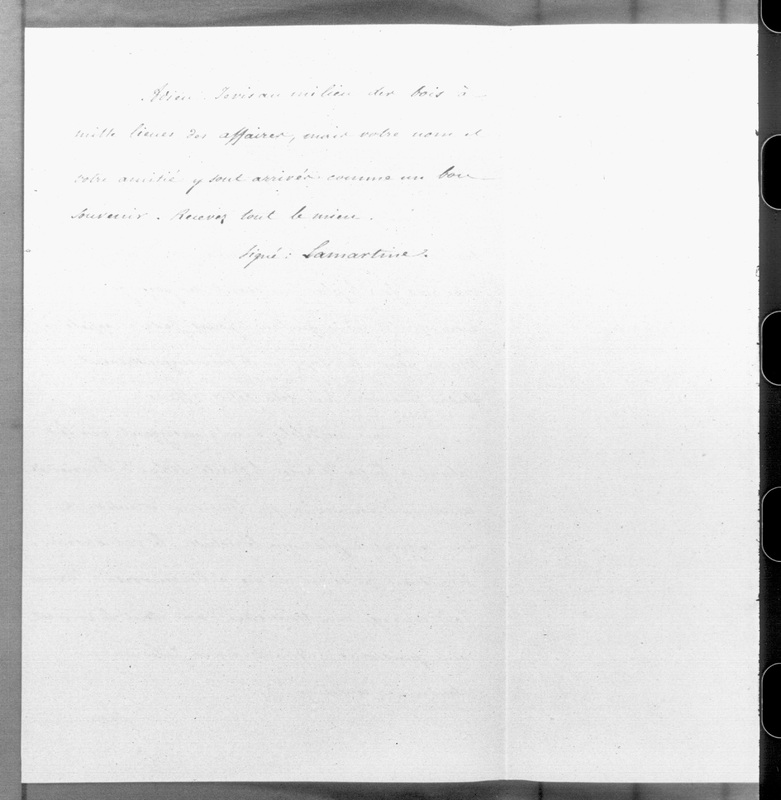 Adieu. Je vis au milieu des bois à
mille lieues des affaires, mais votre nom et
votre amitié y sont arrivés comme un bon
souvenir. Recevez tout le mien.
signé : Lamartine.